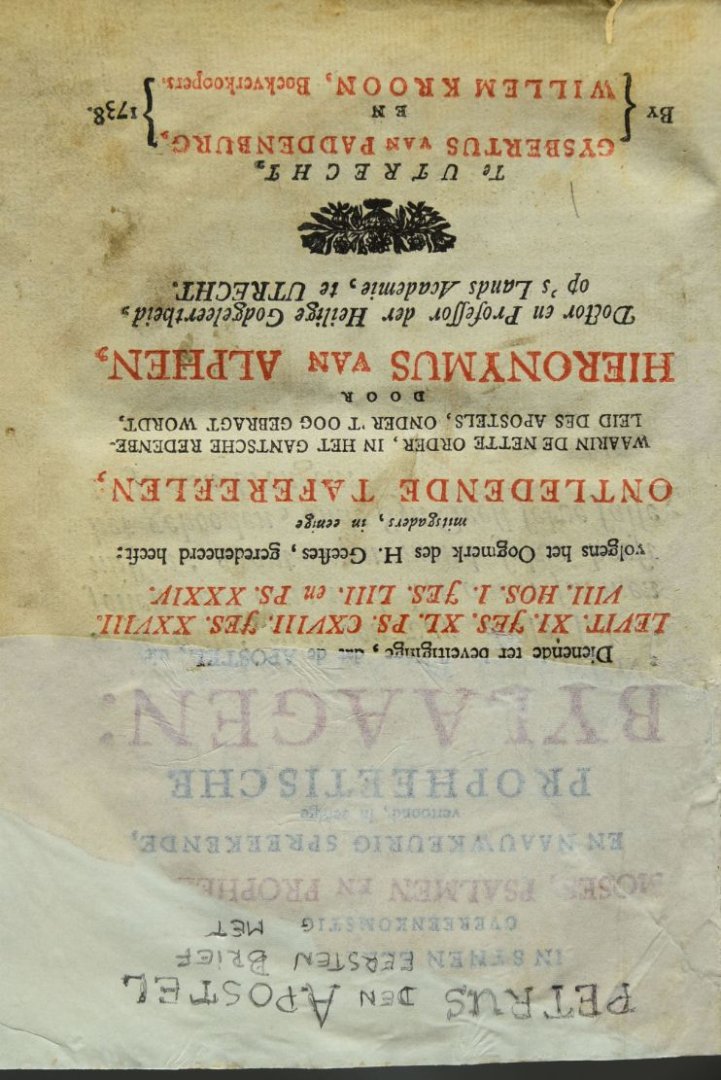 PETRUS DEN APOSTEL
IN SYNEN EERSTEN BRIEF
OVEREENKOMSTIG MET
MOSES, PSALMEN EN PROPHEE
EN NAAUWKEURIG SPREEKENDE,
vertoond, in eenige
PROPHEETISCHE
BYLAAGEN:
Dienende ter bevestiginge, dat de APOSTEL,
LEVIT. XI. JES. XL. PS. CXVIII. JES. XXVIII.
VIII. HOS. I. JES. LIII. en PS. XXXIV.
volgens het Oogmerk des H. Geestes, geredeneerd heeft:
mitsgaders, in eenige
ONTLEDENDE TAFEREELEN,
WAARIN DE NETTE ORDER, IN HET GANTSCHE REDENBE-
LEID DES APOSTELS, ONDER 'T OOG GEBRAGT WORDT,
DOOR
HIERONYMUS VAN ALPHEN,
Doctor en Professor der Heilige Godgeleertheid,
op 's Lands Academie, te UTRECHT.
Te UTRECHT,
GYSBERTUS VAN PADDENBURG,
EN
BY WILLEM KROON, Boekverkoopers. 1738.